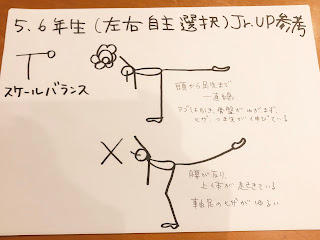 5、6年生(左右自主選択)Jr.UP参考
スケールバランス
頭から足先まで
一直線。
アゴは引き、骨盤が曲がらず、
ヒザ、つま先がくぼびている
×
腰が反り、
上体が起きている
軸足のヒザがゆるい